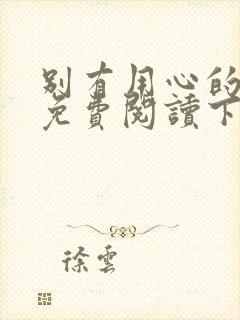 別有用心的
免費閱讀下
徐雲